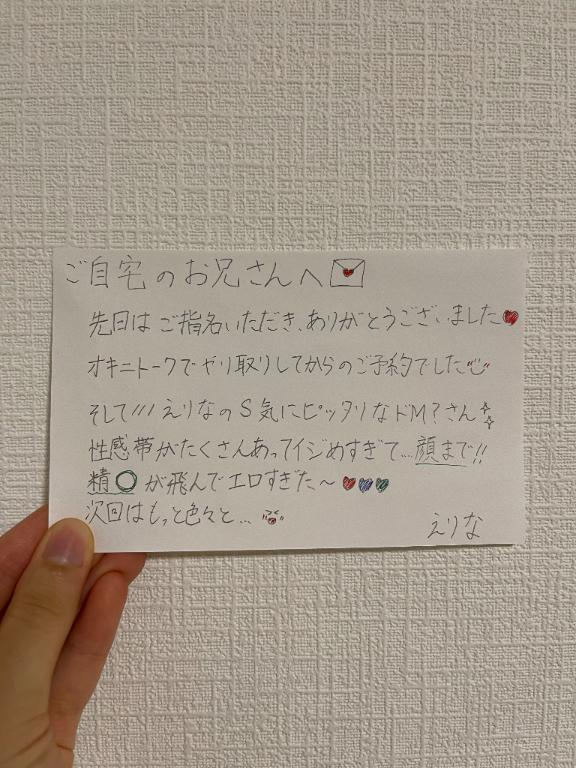 ご自宅のお兄さんへ
先日はご指名いただき、ありがとうございました
オキニトークでやり取りしてからのご予約でした
そして/// えりなのS気にピッタリなドM?さん
性感帯がたくさんあってイジめすぎて....顔まで!!
精〇が飛んでエロすぎた〜
次回はもっと色々と...
えりな